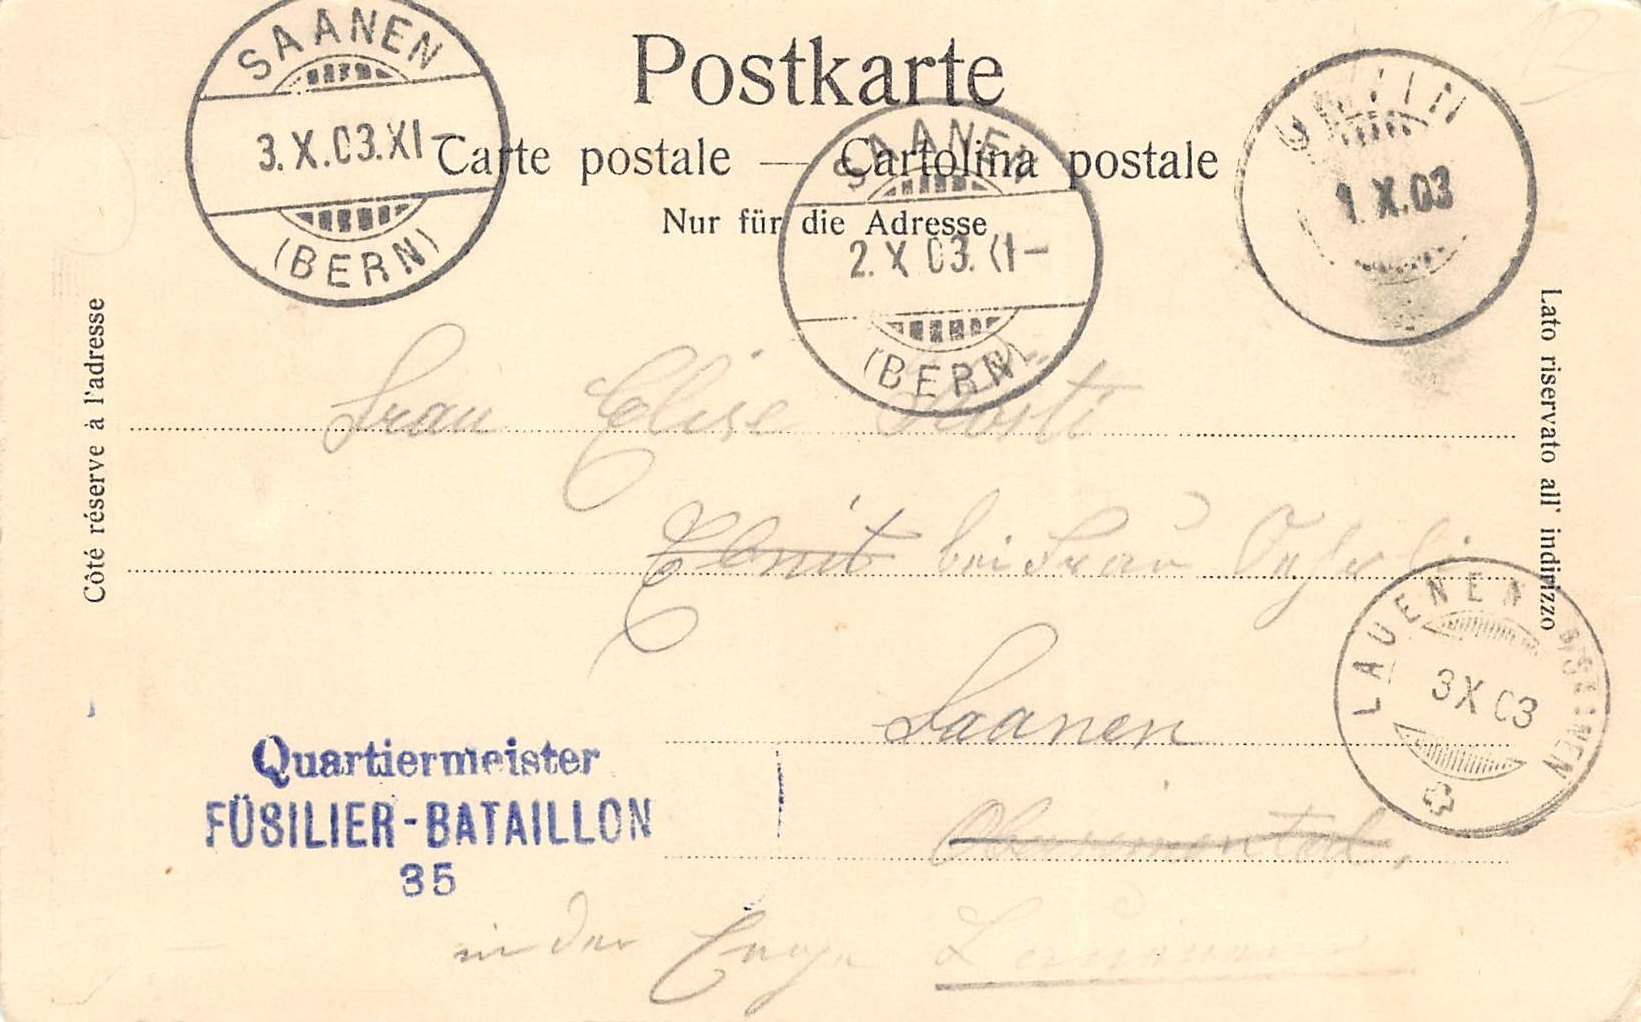 SAANEN
3.X.03.XI-
(BERN)
Postkarte
Carte postale — Cartolina postale
Nur für die Adresse
SAANEN
2.X 03. XI-
(BERN)
1.X.03
Côté réserve à l'adresse
Lato riservato all' indirizzo
Frau Elise
Ebnit bei Frau Oehrli
Saanen
LAUENEN
3 X 03
Quartiermeister
FÜSILIER-BATAILLON
35
Obersimmental,
in der Enge